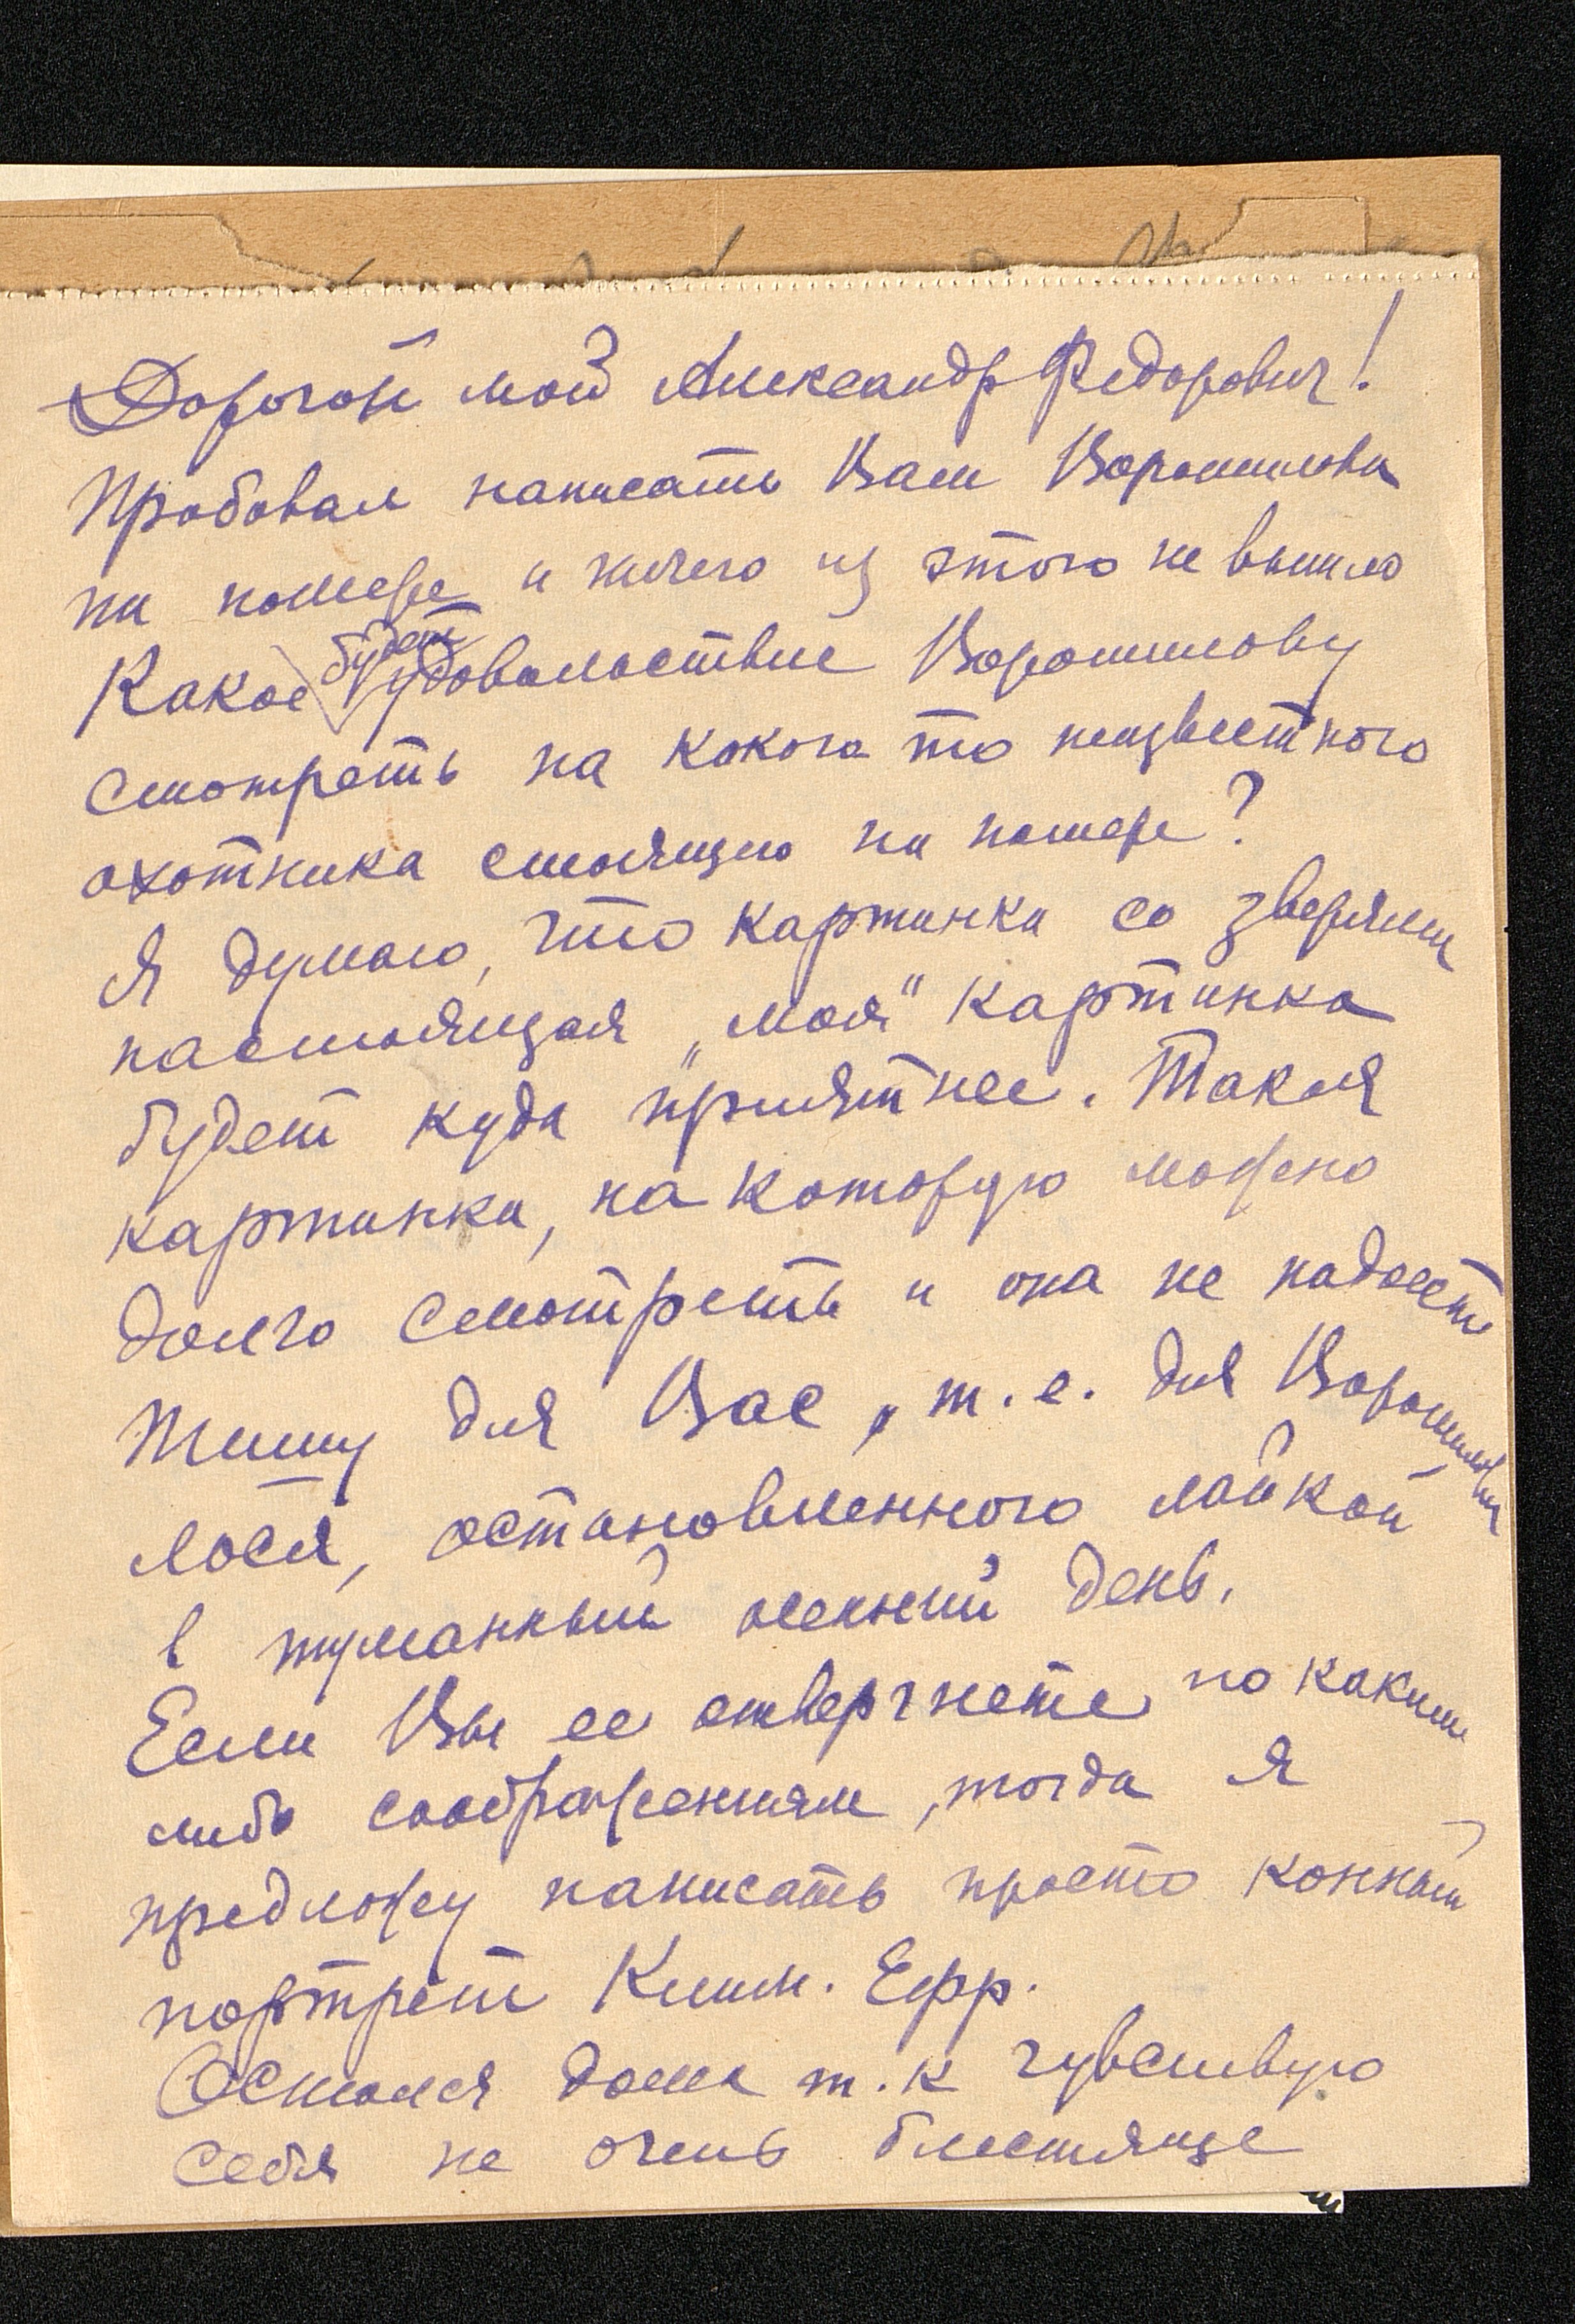 Дорогой мой Александр Федорович!
Пробовал написать Вам Ворошилова
на номере и ничего из этого не вышло
Какое будет удовольствие Ворошилову
смотреть на какого то неизвестного
охотника стоящего на номере?
Я думаю, что картинка со зверями
настоящая „моя" картинка
будет куда приятнее. Такая
картинка, на которую можно
долго смотреть и она не надоест
Пишу для Вас, т.е. для Ворошилова
лося, остановленного лайкой
в туманный осенний день.
Если Вы ее отвергнете по каким
либо соображениям, тогда я
предложу написать просто конный
портрет Клим. Ефр.
Остался дома т.к чувствую
себя не очень блестяще